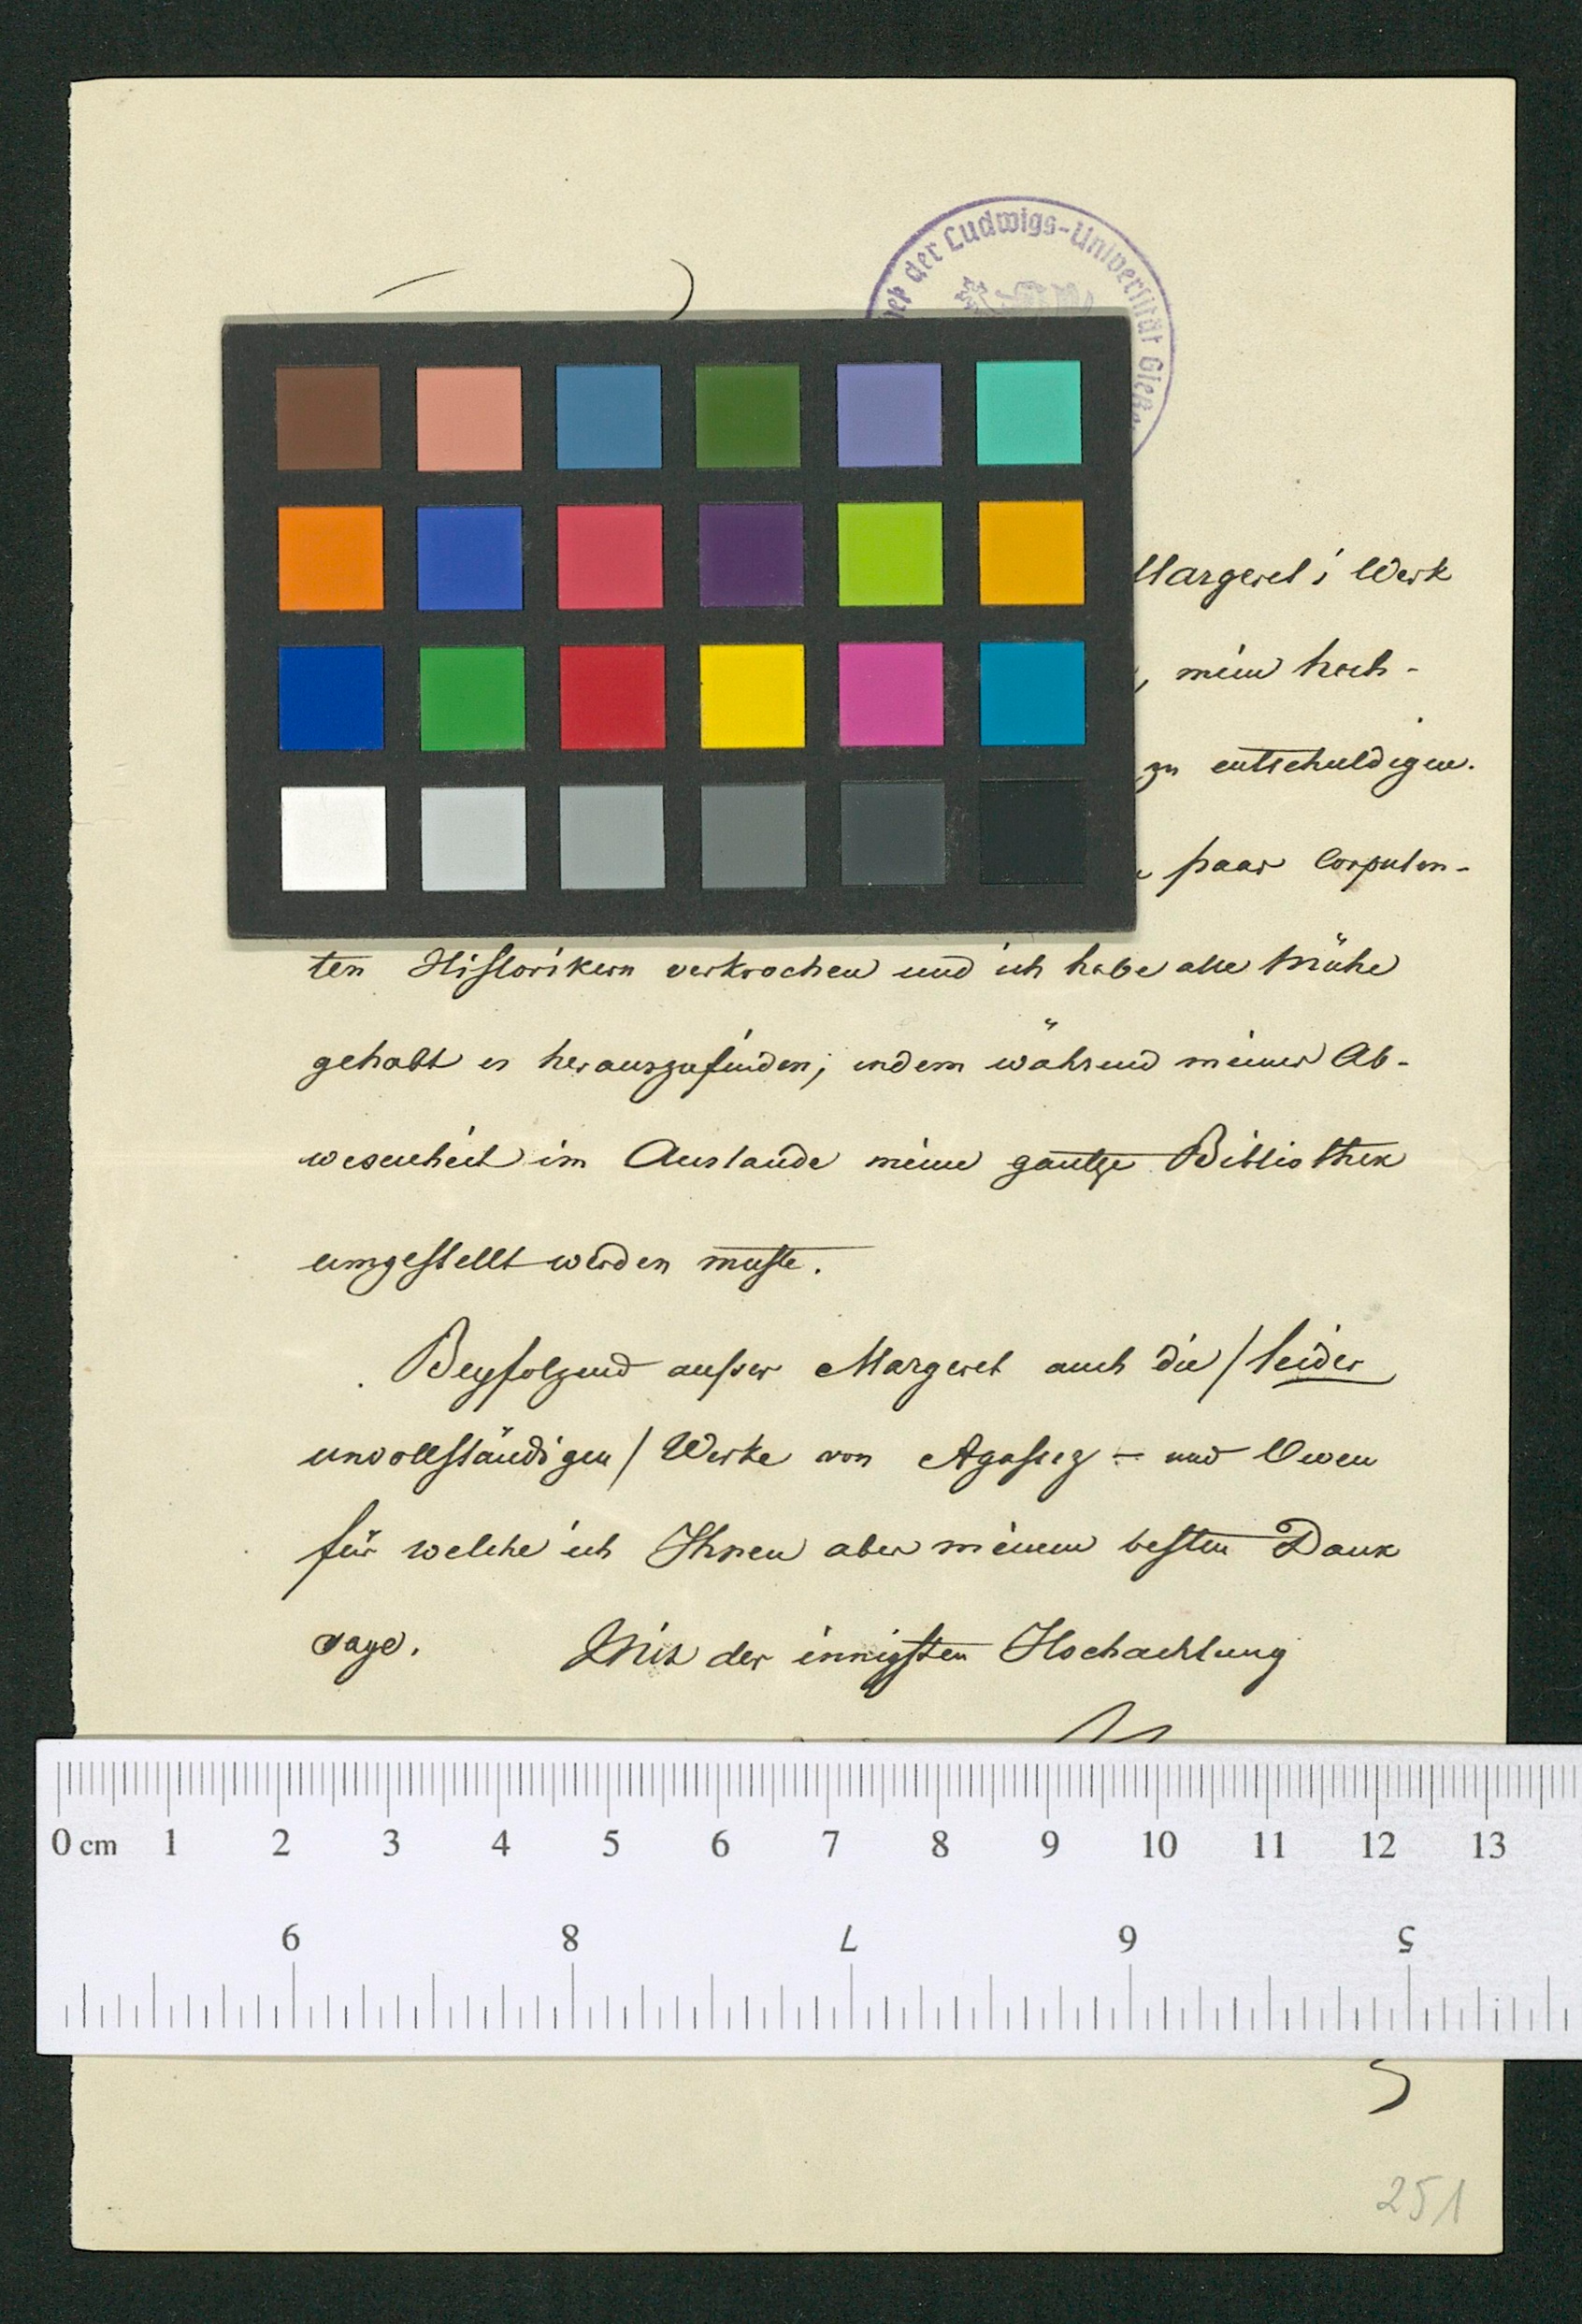 der Ludwigs-Universität Gieß
Margeret's Werk
, meine hoch-
zu entschuldigen.
paar Corpulen-
ten Historikern verkrochen und ich habe alle Mühe
gehabt es herauszufinden; indem während meiner Ab-
wesenheit im Auslande meine gantze Bibliothek
umgestellt werden muste.
Beyfolgend ausser Margeret auch die / leider
unvollständigen / Werke von Agassiz – und Owen
für welche ich Ihnen aber meinen besten Dank
sage. Mit der innigsten Hochachtung
0 cm 1 2 3 4 5 6 7 8 9 10 11 12 13
9 8 7 6 5
251